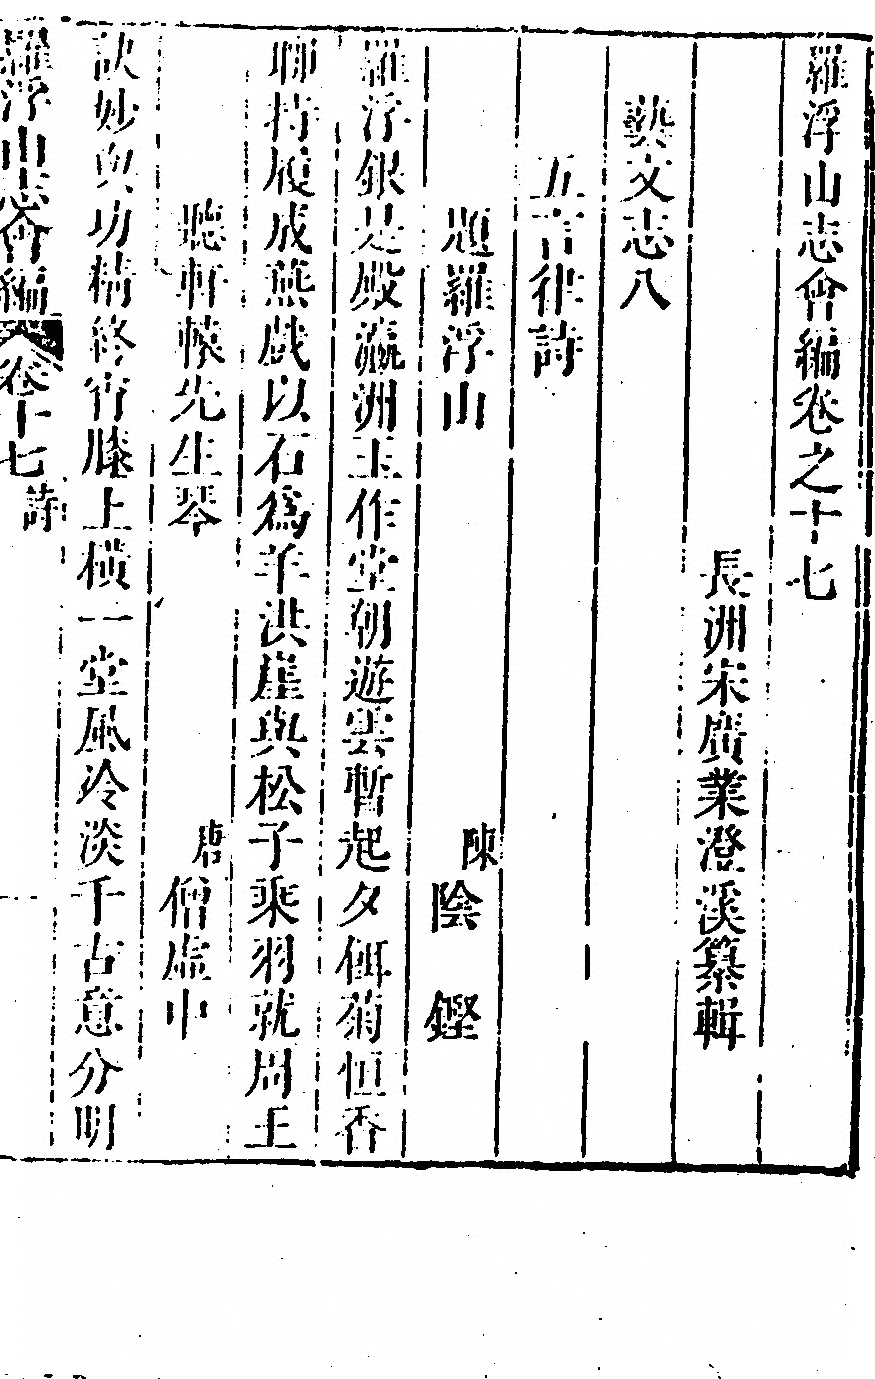 羅浮山志會編卷之十七
長洲宋廣業澄溪纂輯
藝文志八
五言律詩
題羅浮山 陳 陰 鏗
羅浮銀是殿瀛洲玉作堂朝遊雲暫起夕餌菊恒香
聊持履成燕戲以石爲羊洪崖與松子乘羽就周王
聽軒轅先生琴 唐 僧虛中
訣妙與功精終宵膝上橫一堂風冷淡千古意分明
羅浮山志會編 卷十七 詩